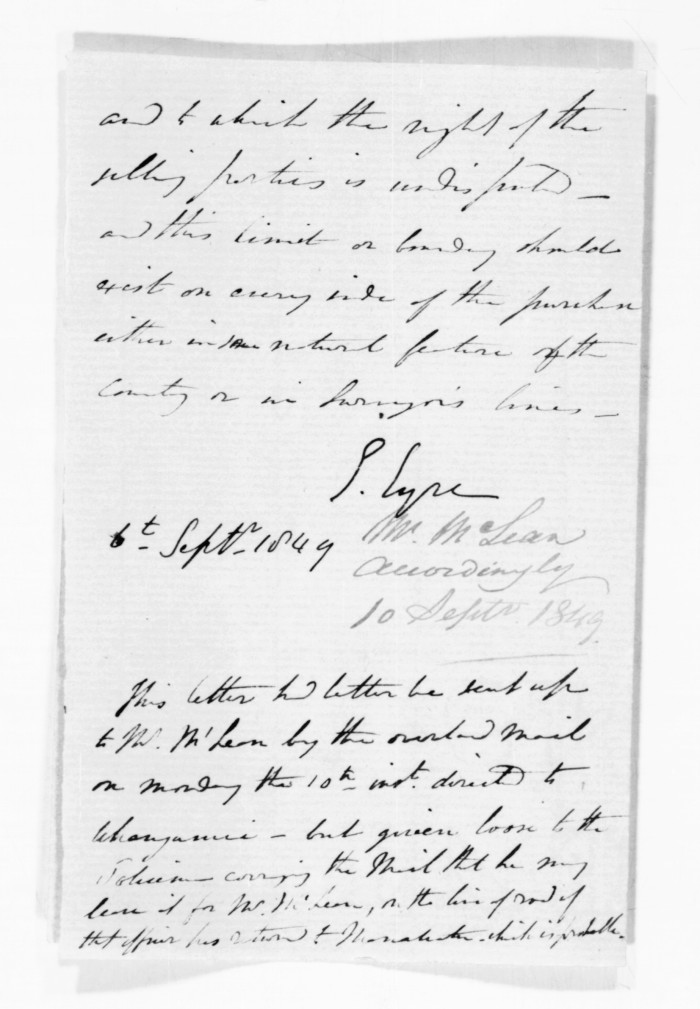 and to which the right of the
selling parties is undisputed –
and this limit or boundary should
exist on every side of the purchase
either in some natural feature of the
country or in Surveyors lines –
E. Eyre
6th Septr 1849
Mr. McLean
Accordingly
10 Septr. 1849.
This letter had better be sent up
to Mr. McLean by the overland mail
on monday the 10th inst. directed to
Whanganui – but given loose to the
Policeman carrying the Mail that he may
leave it for Mr. McLean, on the line of road if
that officer has returned to Manawatu which is probable.